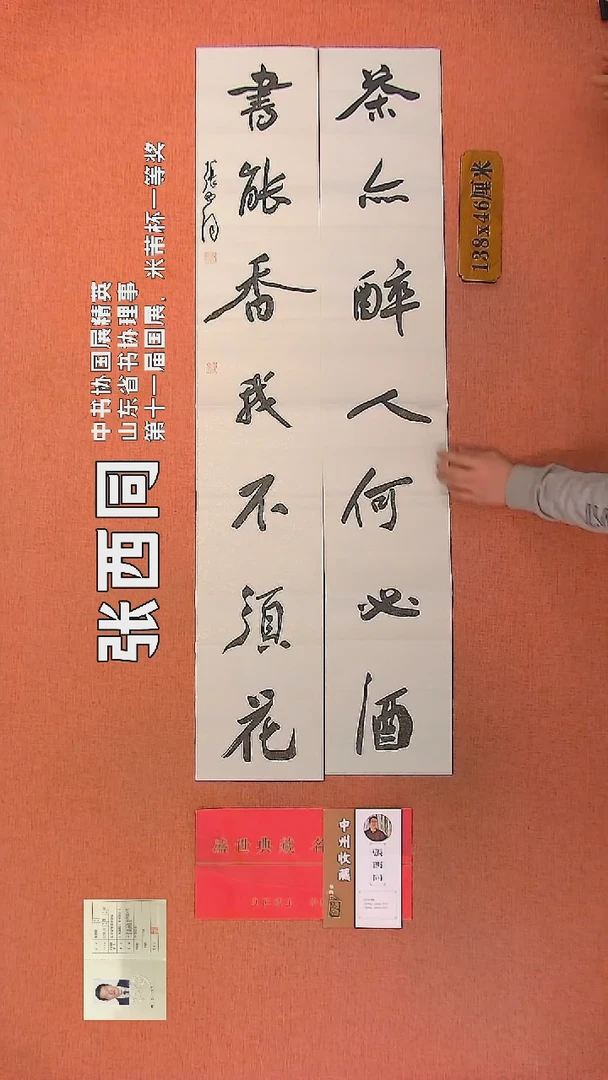 茶亦醉人何必酒
書能香我不須花
张西同
138x46厘米
张西同
中书协国展精英
山东省书协理事
第十一届国展，米芾杯一等奖
盛世典藏
中州收藏
張西同